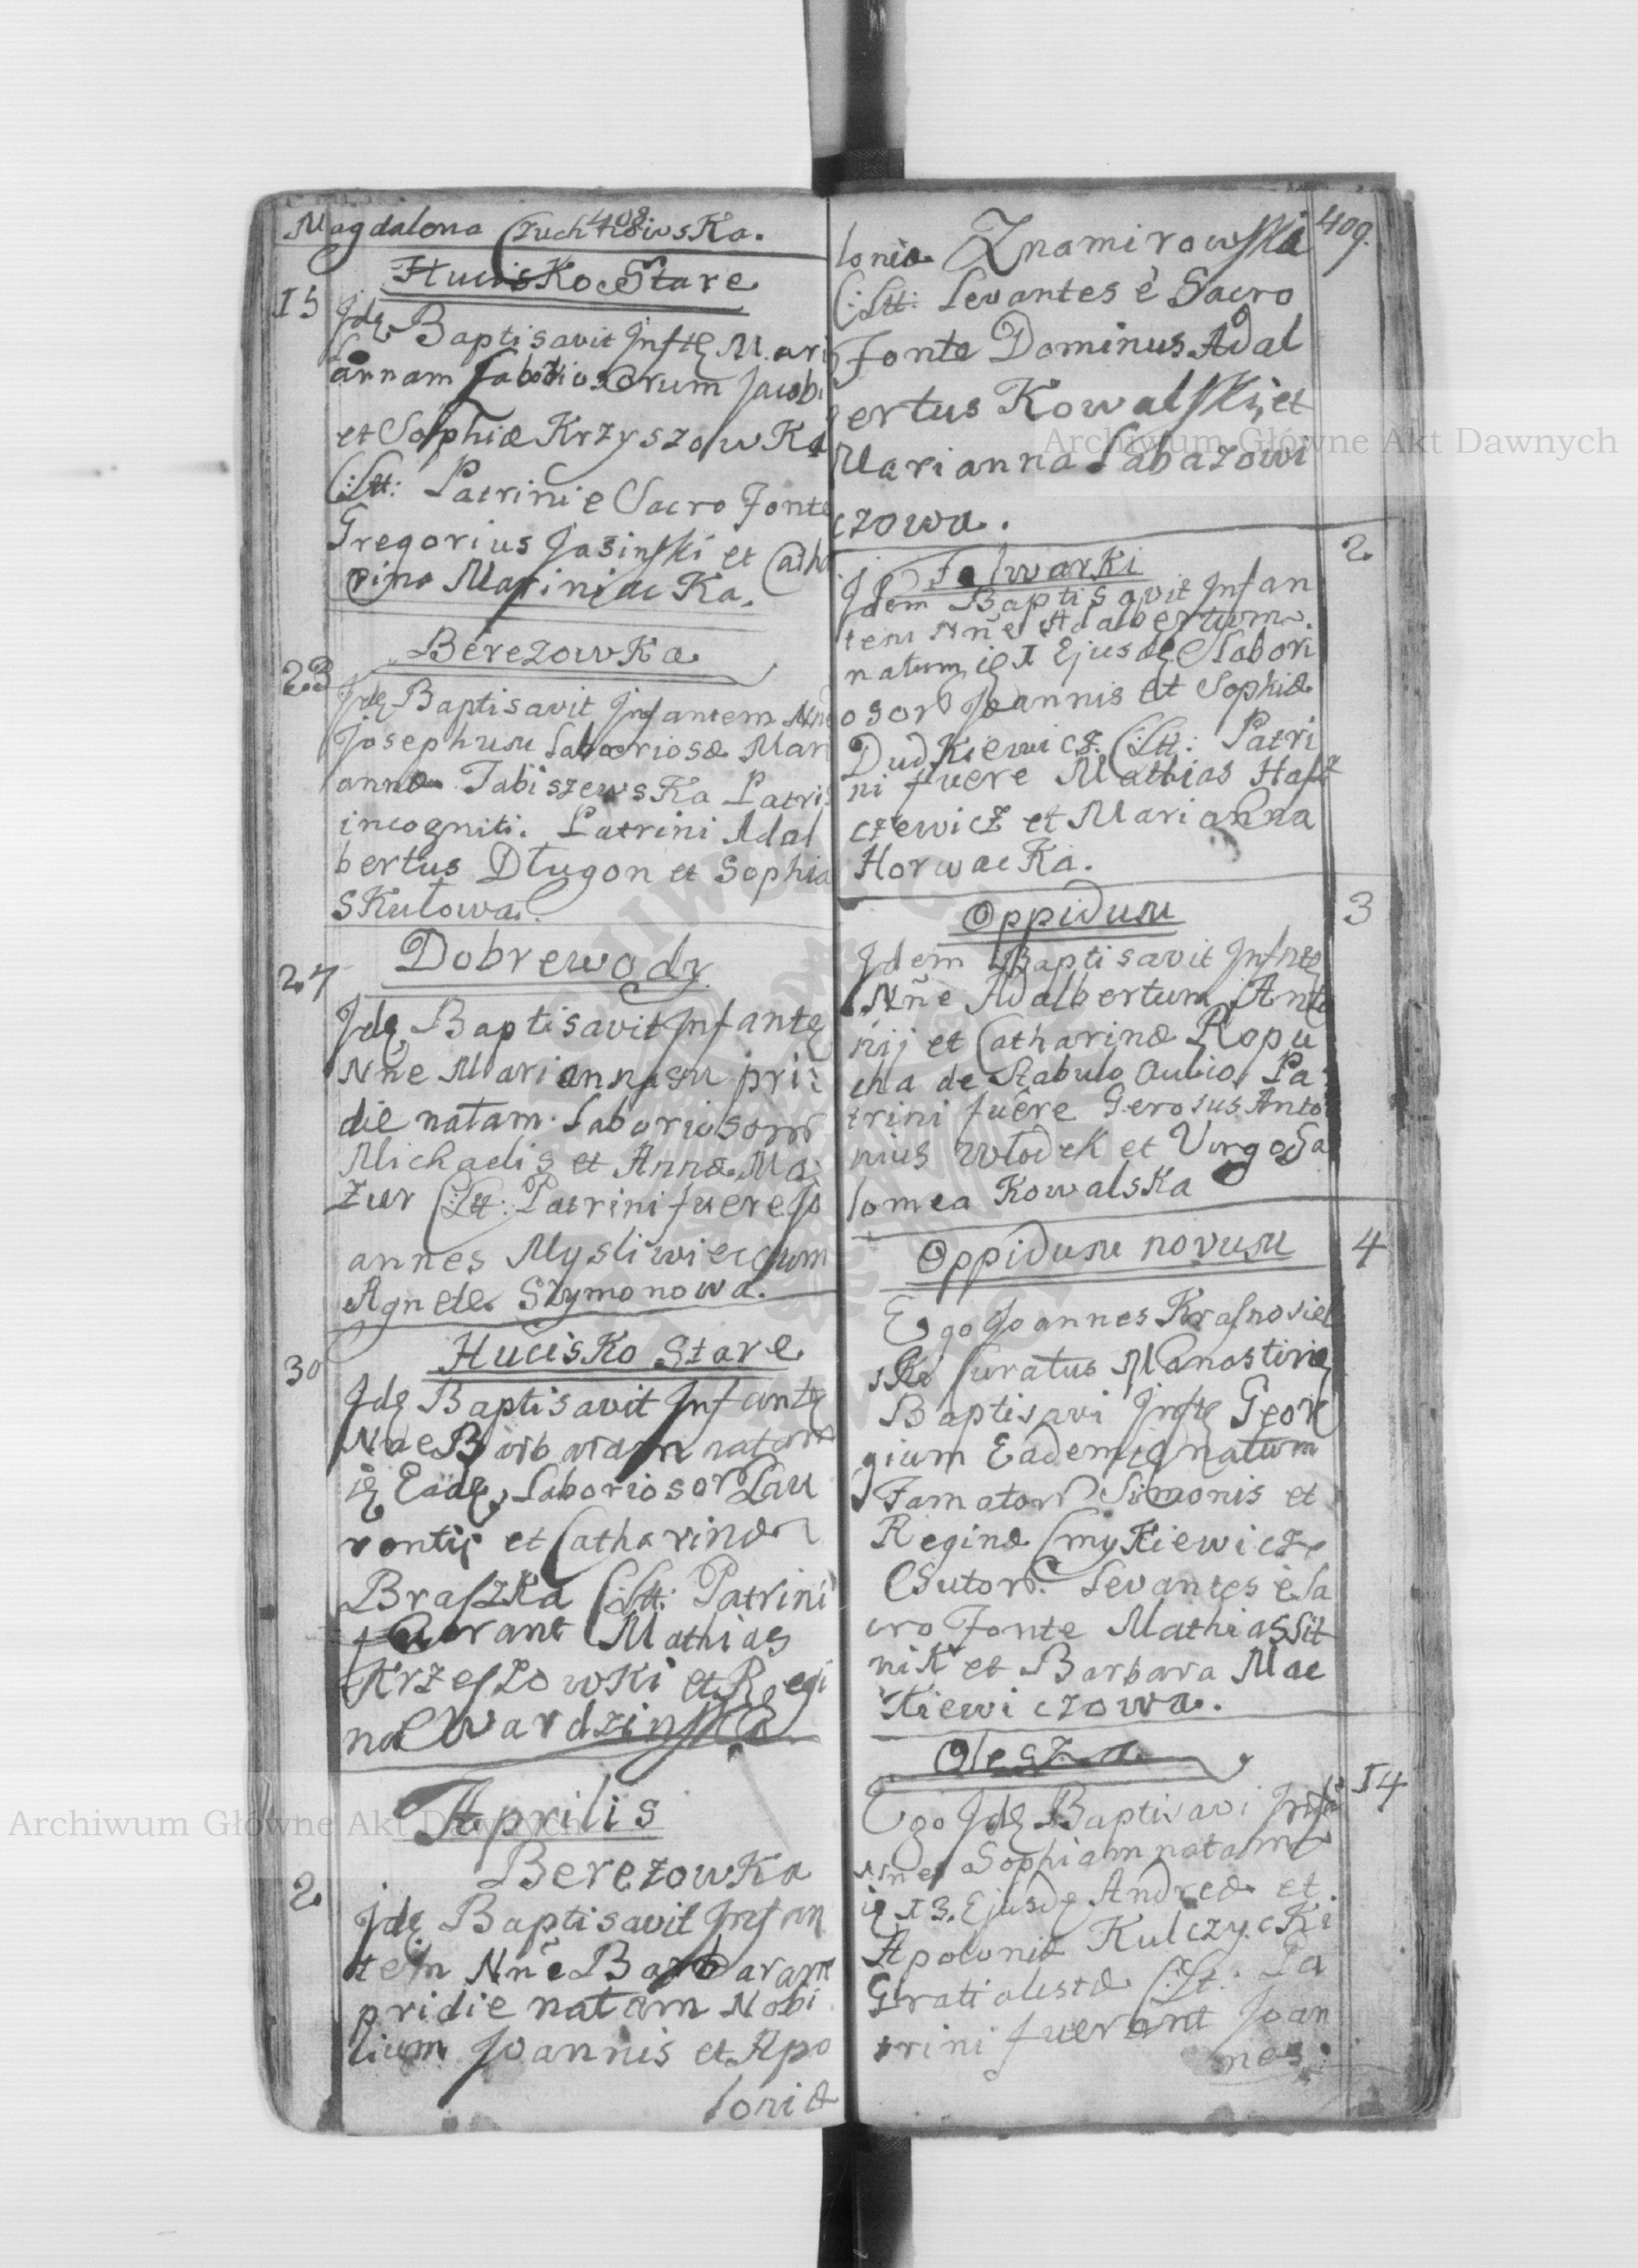 408
Magdalena
Hucisko Stare
15
Jdę Baptisavit Jnftę Mari
annam Laboriosorum Jacobi
et Sophiæ Krzyszowka
C: Ltt: Patrini e Sacro Fonte
Gregorius Jasinski et Catha
rina Mariniacka.
Berezowka
23
Jdę Baptisavit Jnfantem Nne
Josephum Laboriosæ Mari
annæ Tabiszewska Patris
incogniti. Patrini Adal
bertus Długon et Sophia
Skutowa.
Dobrewody
27
Jdę Baptisavit Jnfantę
Nne Mariannam pri
die natam Laboriosorr
Michaelis et Annæ Ma
zur C: Ltt: Patrini fuere Jo
annes Mysliwiec cum
Agnete Szymonowa.
Hucisko Stare
30
Jdę Baptisavit Jnfantę
Nne Barbaram natam
ię Eadę, Laboriosor Lau
rentij et Catharinæ
Braszka C: Ltt: Patrini
fuerant Mathias
Krzeszowki et Regi
na Wardzinska
Aprilis
Berezowka
2
Jdę Baptisavit Jnfan
tem Nñe Barbaram
pridie natam Nobi
lium Joannis et Apo
loniæ
409.
loniæ Znamirowski
C: Ltt: Levantes è Sacro
Fonte Dominus Adal
bertus Kowalski, et
Marianna Labazowi
czowa.
Folwarki
2
Jdem Baptisavit Jnfan
tem Nñe Adalbertum
natum ię 1 Ejusdę Labori
osor Joannis et Sophiæ
Dudkiewicz. C: Ltt: Patri
ni fuere Mathias
czewicz et Marianna
Horwacka.
Oppidum
3
Jdem Baptisavit Jnfntę
Nñe Adalbertum Anto
nij et Catharinæ Ropu
cha de Stabulo Aulico, Pa
trini fuêre Gerosus Anto
nius Włodek et Virgo Sa
lomea Kowalska
Oppidum novum
4
Ego Joannes Krasnosiel
ski Curatus Monastirię
Baptisavi Jnftę Geor
gium Eadem ię natum
Famator Simonis et
Reginæ Cmykiewicze
Sutor. Levantes è Sa
cro Fonte Mathias Sit
nik et Barbara Mac
kiewiczowa.
Olesza
14
Ego Jdę Baptisavi Jnft
Nne Sophiam natam
ię 13. Ejusdę Andreæ et
Apoloniæ Kulczycki
Gratialistæ C: Lt: Pa
trini fuerant Joan
nes
Archiwum Główne Akt Dawnych
Archiwum Główne Akt Dawnych